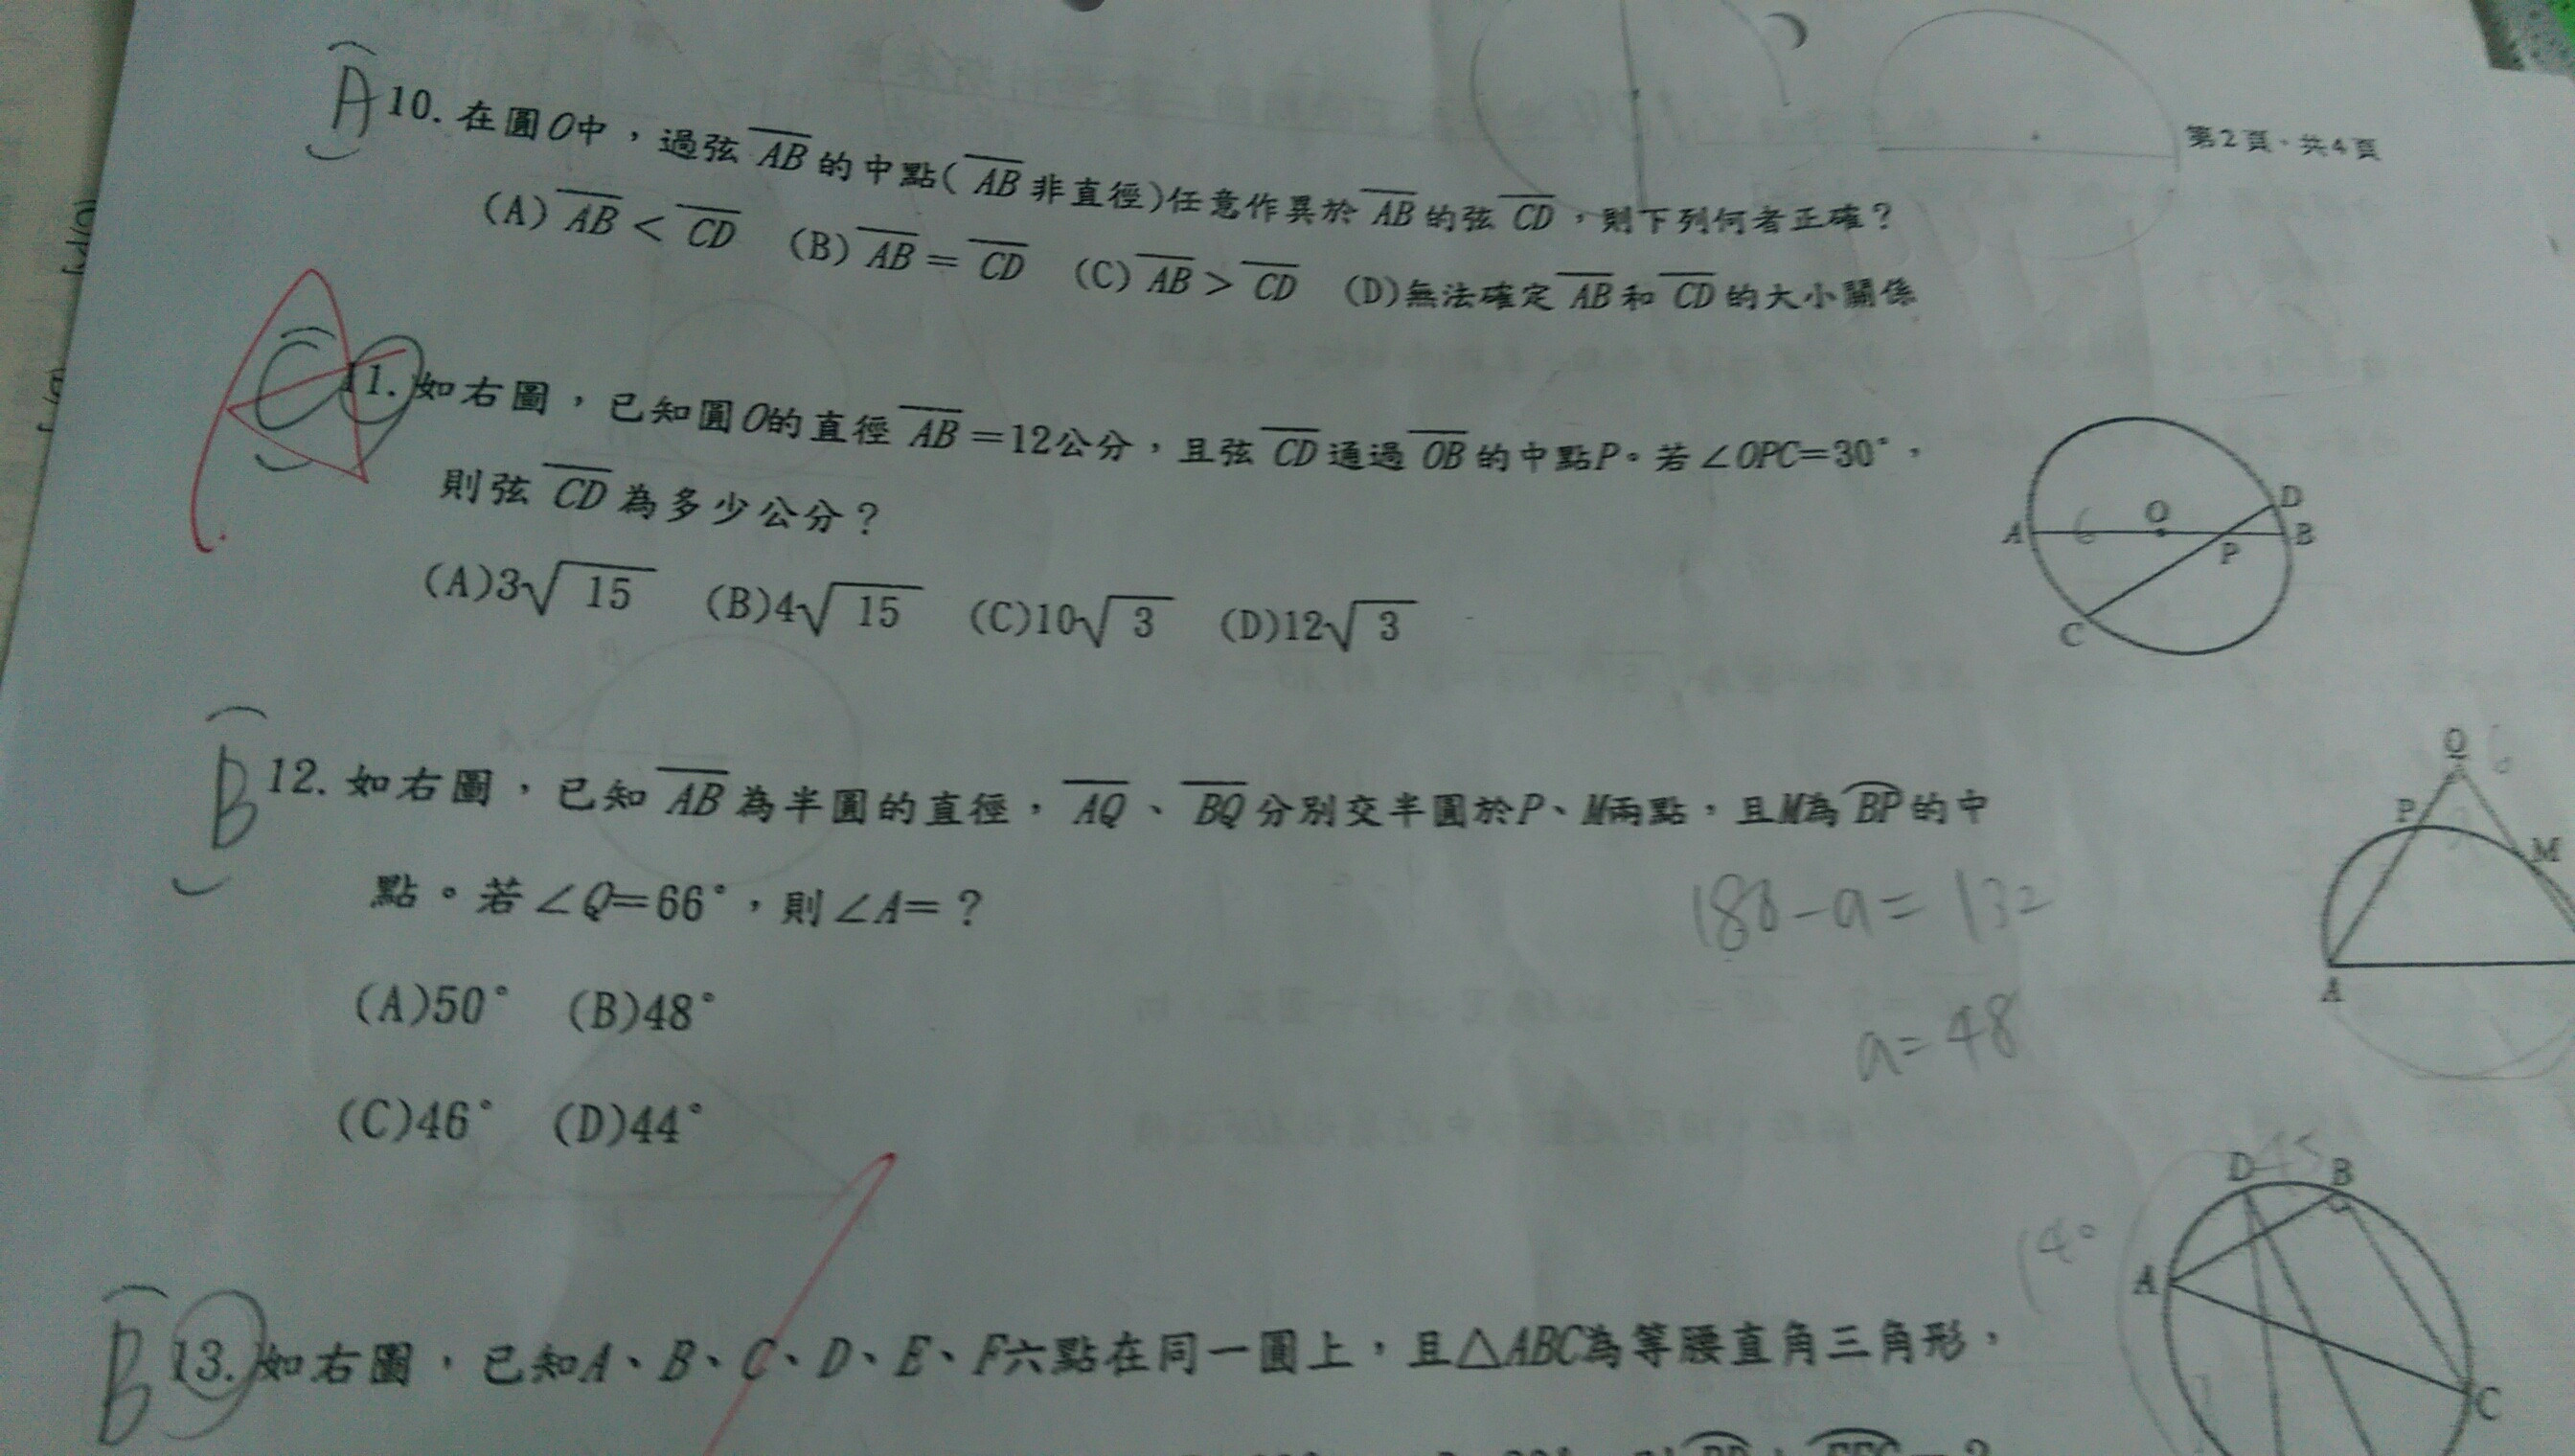 第2頁,共4頁
A 10. 在圓O中,過弦AB的中點(AB非直徑)任意作異於AB的弦CD,則下列何者正確?
(A)AB<CD (B)AB=CD (C)AB>CD (D)無法確定AB和CD的大小關係
C A 11. 如右圖,已知圓O的直徑AB=12公分,且弦CD通過OB的中點P。若∠OPC=30°,
則弦CD為多少公分?
(A)3√15 (B)4√15 (C)10√3 (D)12√3
A 6 O P B D C
B 12. 如右圖,已知AB為半圓的直徑,AQ、BQ分別交半圓於P、M兩點,且M為BP的中
點。若∠Q=66°,則∠A=?
(A)50° (B)48°
(C)46° (D)44°
180-a=132
a=48
Q P M A
B 13. 如右圖,已知A、B、C、D、E、F六點在同一圓上,且△ABC為等腰直角三角形,
D B A C